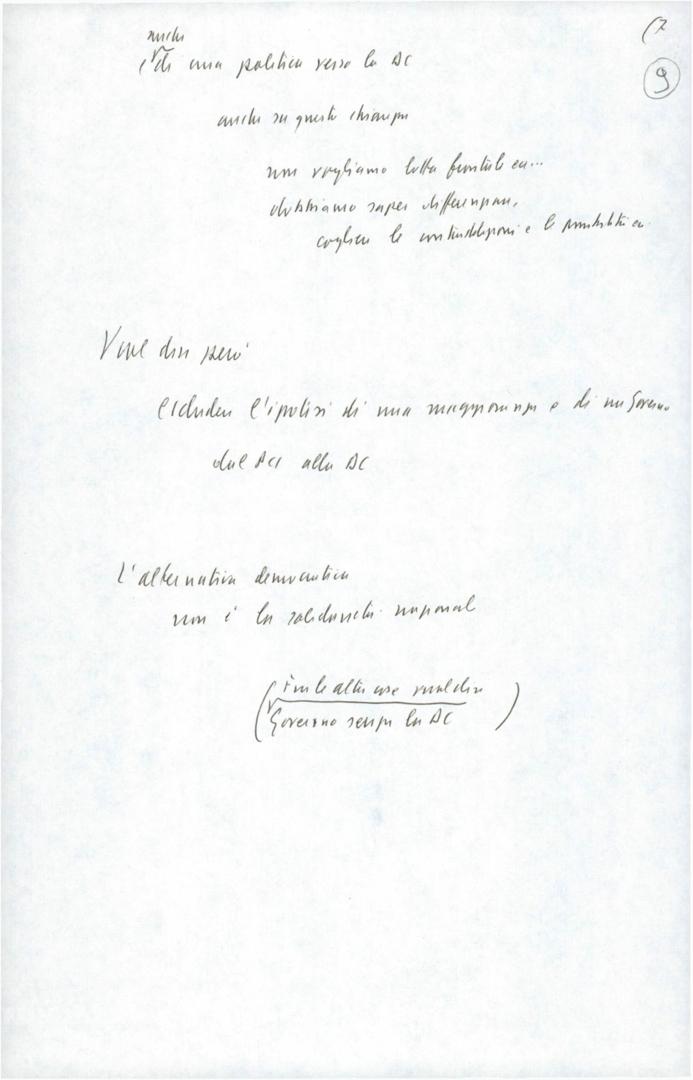 (7
9
anche
(di una politica verso la DC
anche su questo chiarezza
non vogliamo lotta frontale ecc...
dobbiamo saper differenziare,
cogliere le contraddizioni e le possibilità ecc
Vuol dire però
escludere l'ipotesi di una maggioranza e di un Governo
dal PCI alla DC
L'alternativa democratica
non è la solidarietà nazionale
(Fra le altre cose vuol dire
Governo senza la DC)